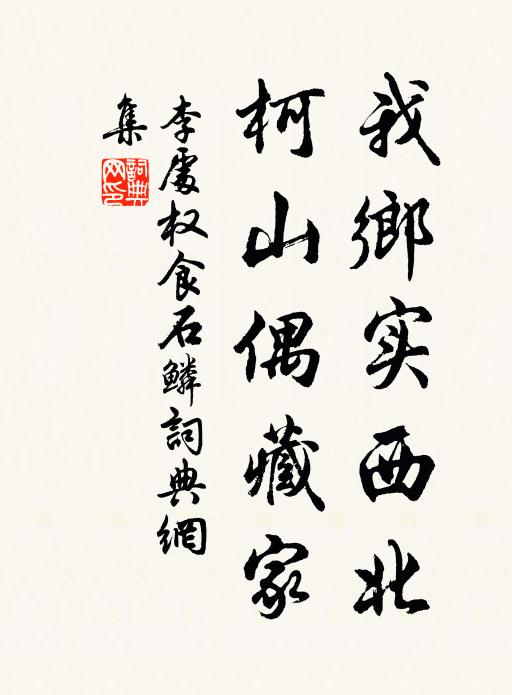 我鄉实西北
柯山偶藏家
李處权食石鱗詞典網
集
詞典网印